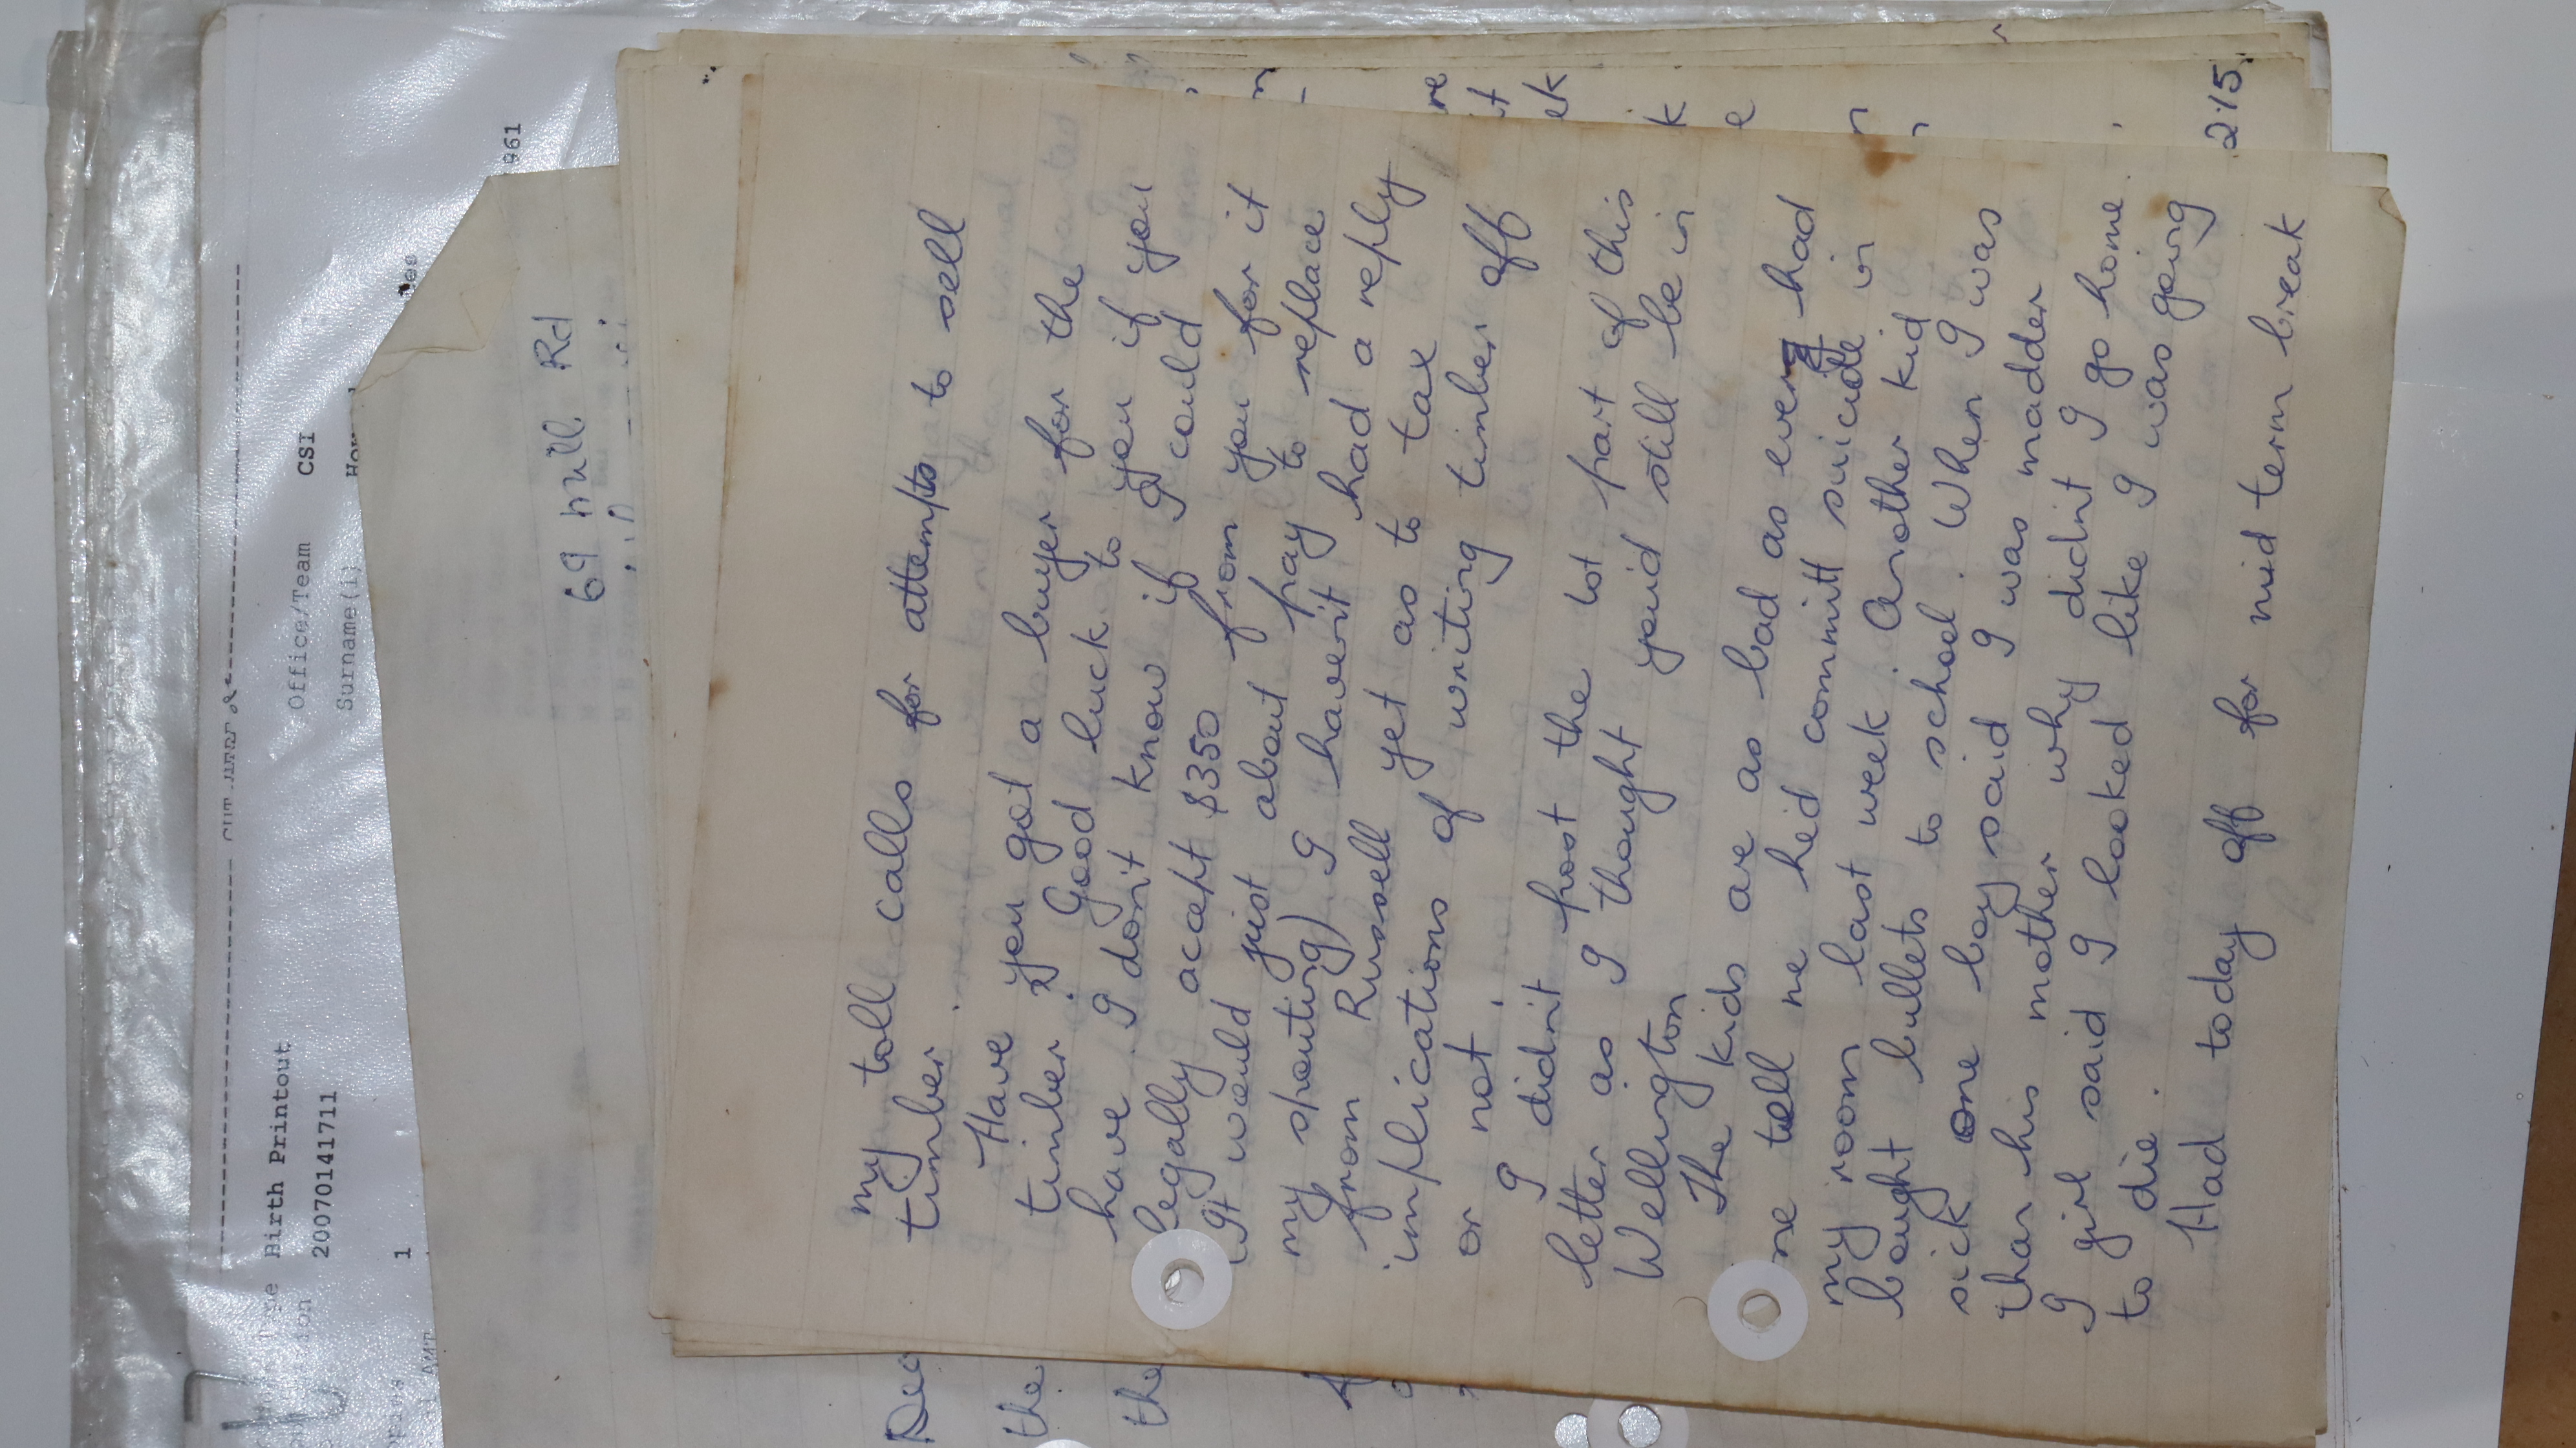 Office/Team CSI
Surname(1)
Birth Printout
20070141711
1
961
69 mill Rd
my toll calls for attempts to sell
timber.
Have you got a buyer for the
timber. Good luck to you if you
have. I don't know if I could
legally accept $350 from you for it
(It would just about pay to replace
my shouting) I haven't had a reply
from Russell yet as to tax
implications of writing timber off
or not.
I didn't post the 1st part of this
letter as I thought you'd still be in
Wellington
The kids are as bad as ever had
one tell me he'd committ suicide in
my room last week another kid
bought bullets to school. When I was
sick one boy said I was madder
than his mother why didn't I go home.
I girl said I looked like I was going
to die.
Had today off for mid term break
the
the
ek
2.15.